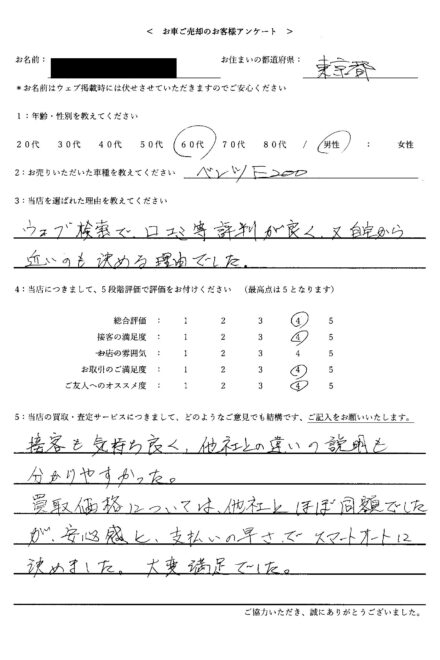 ＜　お車ご売却のお客様アンケート　＞
お名前：　お住まいの都道府県：　東京都
＊お名前はウェブ掲載時には伏せさせていただきますのでご安心ください
1：年齢・性別を教えてください
20代　30代　40代　50代　60代　70代　80代　/　男性　：　女性
2：お売りいただいた車種を教えてください　ベンツE200
3：当店を選ばれた理由を教えてください
ウェブ検索で、口コミ等評判が良く、又自宅から
近いのも決める理由でした。
4：当店につきまして、5段階評価で評価をお付けください　（最高点は5となります）
総合評価　：　1　2　3　4　5
接客の満足度　：　1　2　3　4　5
お店の雰囲気　：　1　2　3　4　5
お取引のご満足度　：　1　2　3　4　5
ご友人へのオススメ度　：　1　2　3　4　5
5：当店の買取・査定サービスにつきまして、どのようなご意見でも結構です、ご記入をお願いいたします。
接客も気持ち良く、他社との違いの説明も
分かりやすかった。
買取価格については、他社とほぼ同額でした
が、安心感と、支払いの早さでスマートオートに
決めました。大変満足でした。
ご協力いただき、誠にありがとうございました。